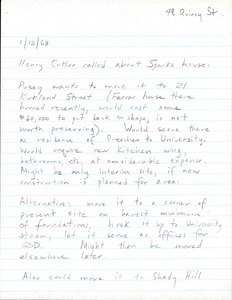 48 Quincy St
1/12/68
Henry Cutler called about Sparks house:
Pusey wants to move it to 21
Kirkland Street (Farrar house there
burned recently, would cost some
$60,000 to put back in shape, is not
worth preserving). Would serve there
as residence of Preacher to University.
Would require new kitchen wing,
bathrooms, etc, at considerable expense.
Might be only interim site, if new
construction is planned for area.
Alternative: move it to a corner of
present site on barest minimum
of foundations, hook it up to University
steam, let it serve as offices for
GSD. Might then be moved
elsewhere later.
Also could move it to Shady Hill